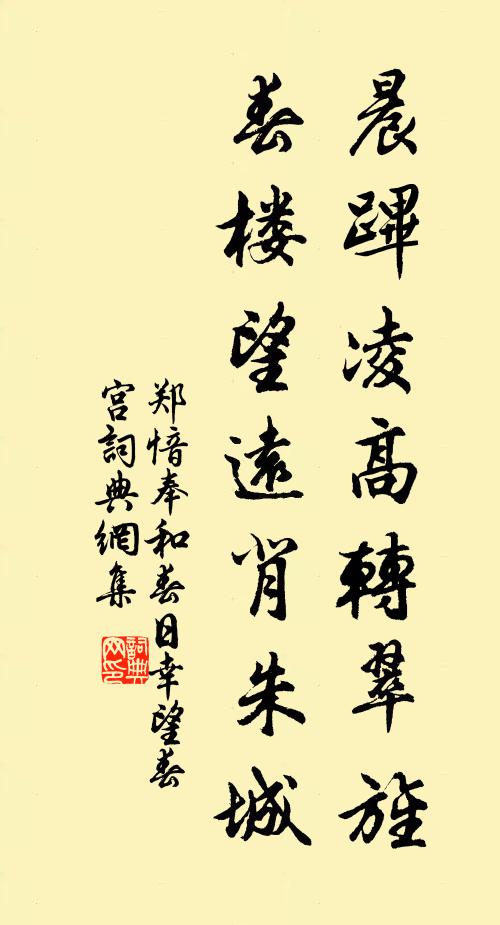 晨蹕凌高轉翠旌
春楼望遠背朱城
郑愔奉和春日幸望春
宫詞典網集
詞典网印